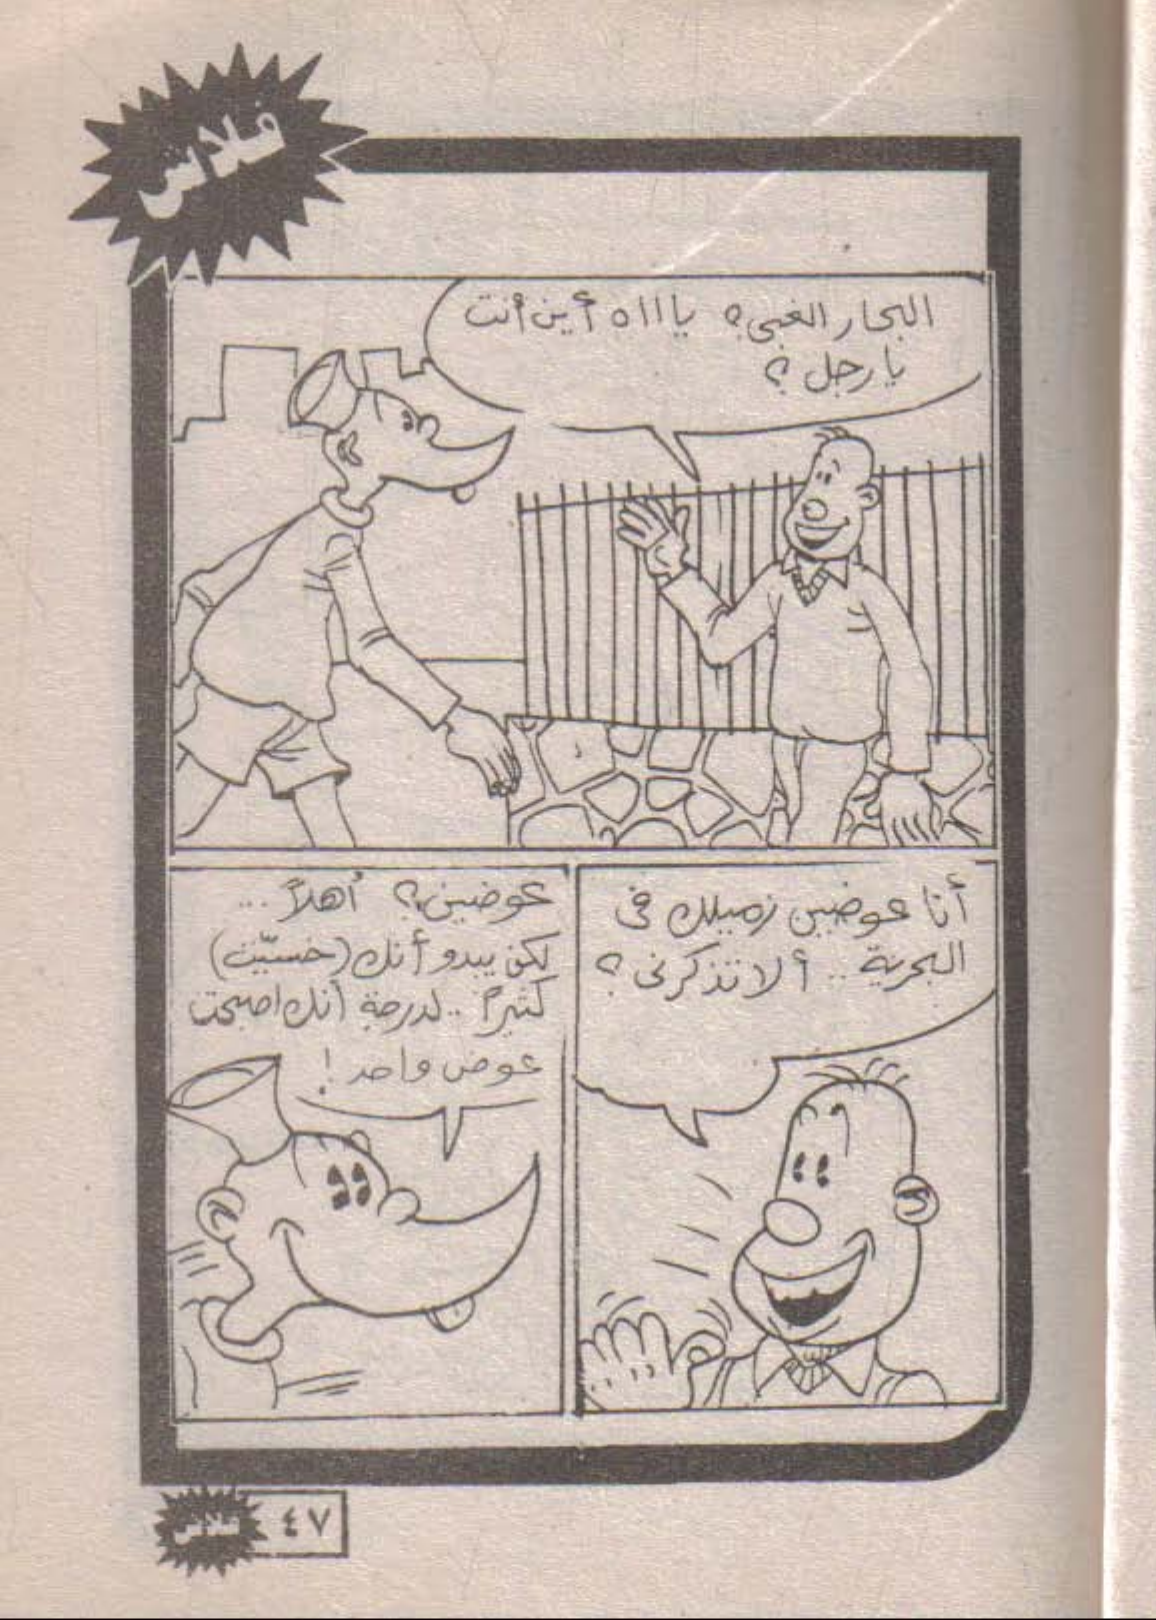 فلاش
البحار الغبى؟ يا ا ا ه أين أنت
يا رجل؟
أنا عوضين زميلك فى
البحرية .. ألا تذكرنى؟
عوضين؟ أهلاً ...
لكن يبدو أنك (خسيّت)
كثيراً .. لدرجة أنك اصبحت
عوض واحد!
فلاش
٤٧